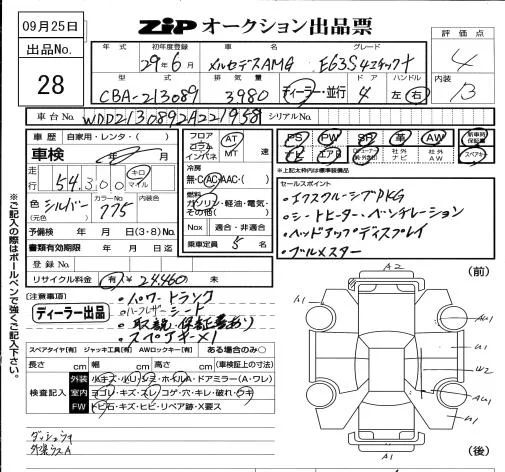 09月25日
出品No.
28
ZIP オークション出品票
評価点
4
内装
B
年式 初年度登録 車名 グレード
29年6月 メルセデスAMG E63S 4マチック+
型式 排気量 ドア ハンドル
CBA-213089 3980 ディーラー・並行 4 左 右
車台No. WDD2130892A221958 シリアルNo.
車歴 自家用・レンタ・( )
車検 年 月
走行 54,300 キロ マイル
色 (元色) シルバー カラーNo. 775 内装色
予備検 年 月 日(3・8)No.
書類有効期限 年 月 日迄
登録No.
リサイクル料金 有 ¥24,460 未
フロア コラム インパネ AT MT 速
冷房 無・C・AC・AAC・( )
燃料 ガソリン・軽油・電気・その他( )
Nox 適合・非適合
乗車定員 5 名
PS PW SR 革 AW 新車時保証書
ナビ エアB 社外ナビ 社外AW スペアキー
*上記太枠内は標準装備品
セールスポイント
・エクスクルーシブPKG
・シートヒーター・ベンチレーション
・ヘッドアップディスプレイ
・ブルメスター
(注意事項)
ディーラー出品
・パワートランク
・ハーフレザーシート
・取説・保証書あり
・スペアキー×1
スペアタイヤ[有] ジャッキ工具[有] AWロックキー[有] ある場合のみ○
長さ cm 幅 cm 高さ cm (車検証上の寸法)
検査記入
外装 小キズ・小リ・シミ・ホイルA・ドアミラー(A・ワレ)
室内 ヨゴレ・キズ・スレ・コゲ・穴・キレ・破れ・ウキ
FW トビ石・キズ・ヒビ・リペア跡・X要ス
ダッシュウキ
外装ウスA
(前)
A2
A1
AW1
U1
W2
AW1
U1
A1
(後)
※ご記入の際はボールペンで強くご記入下さい。